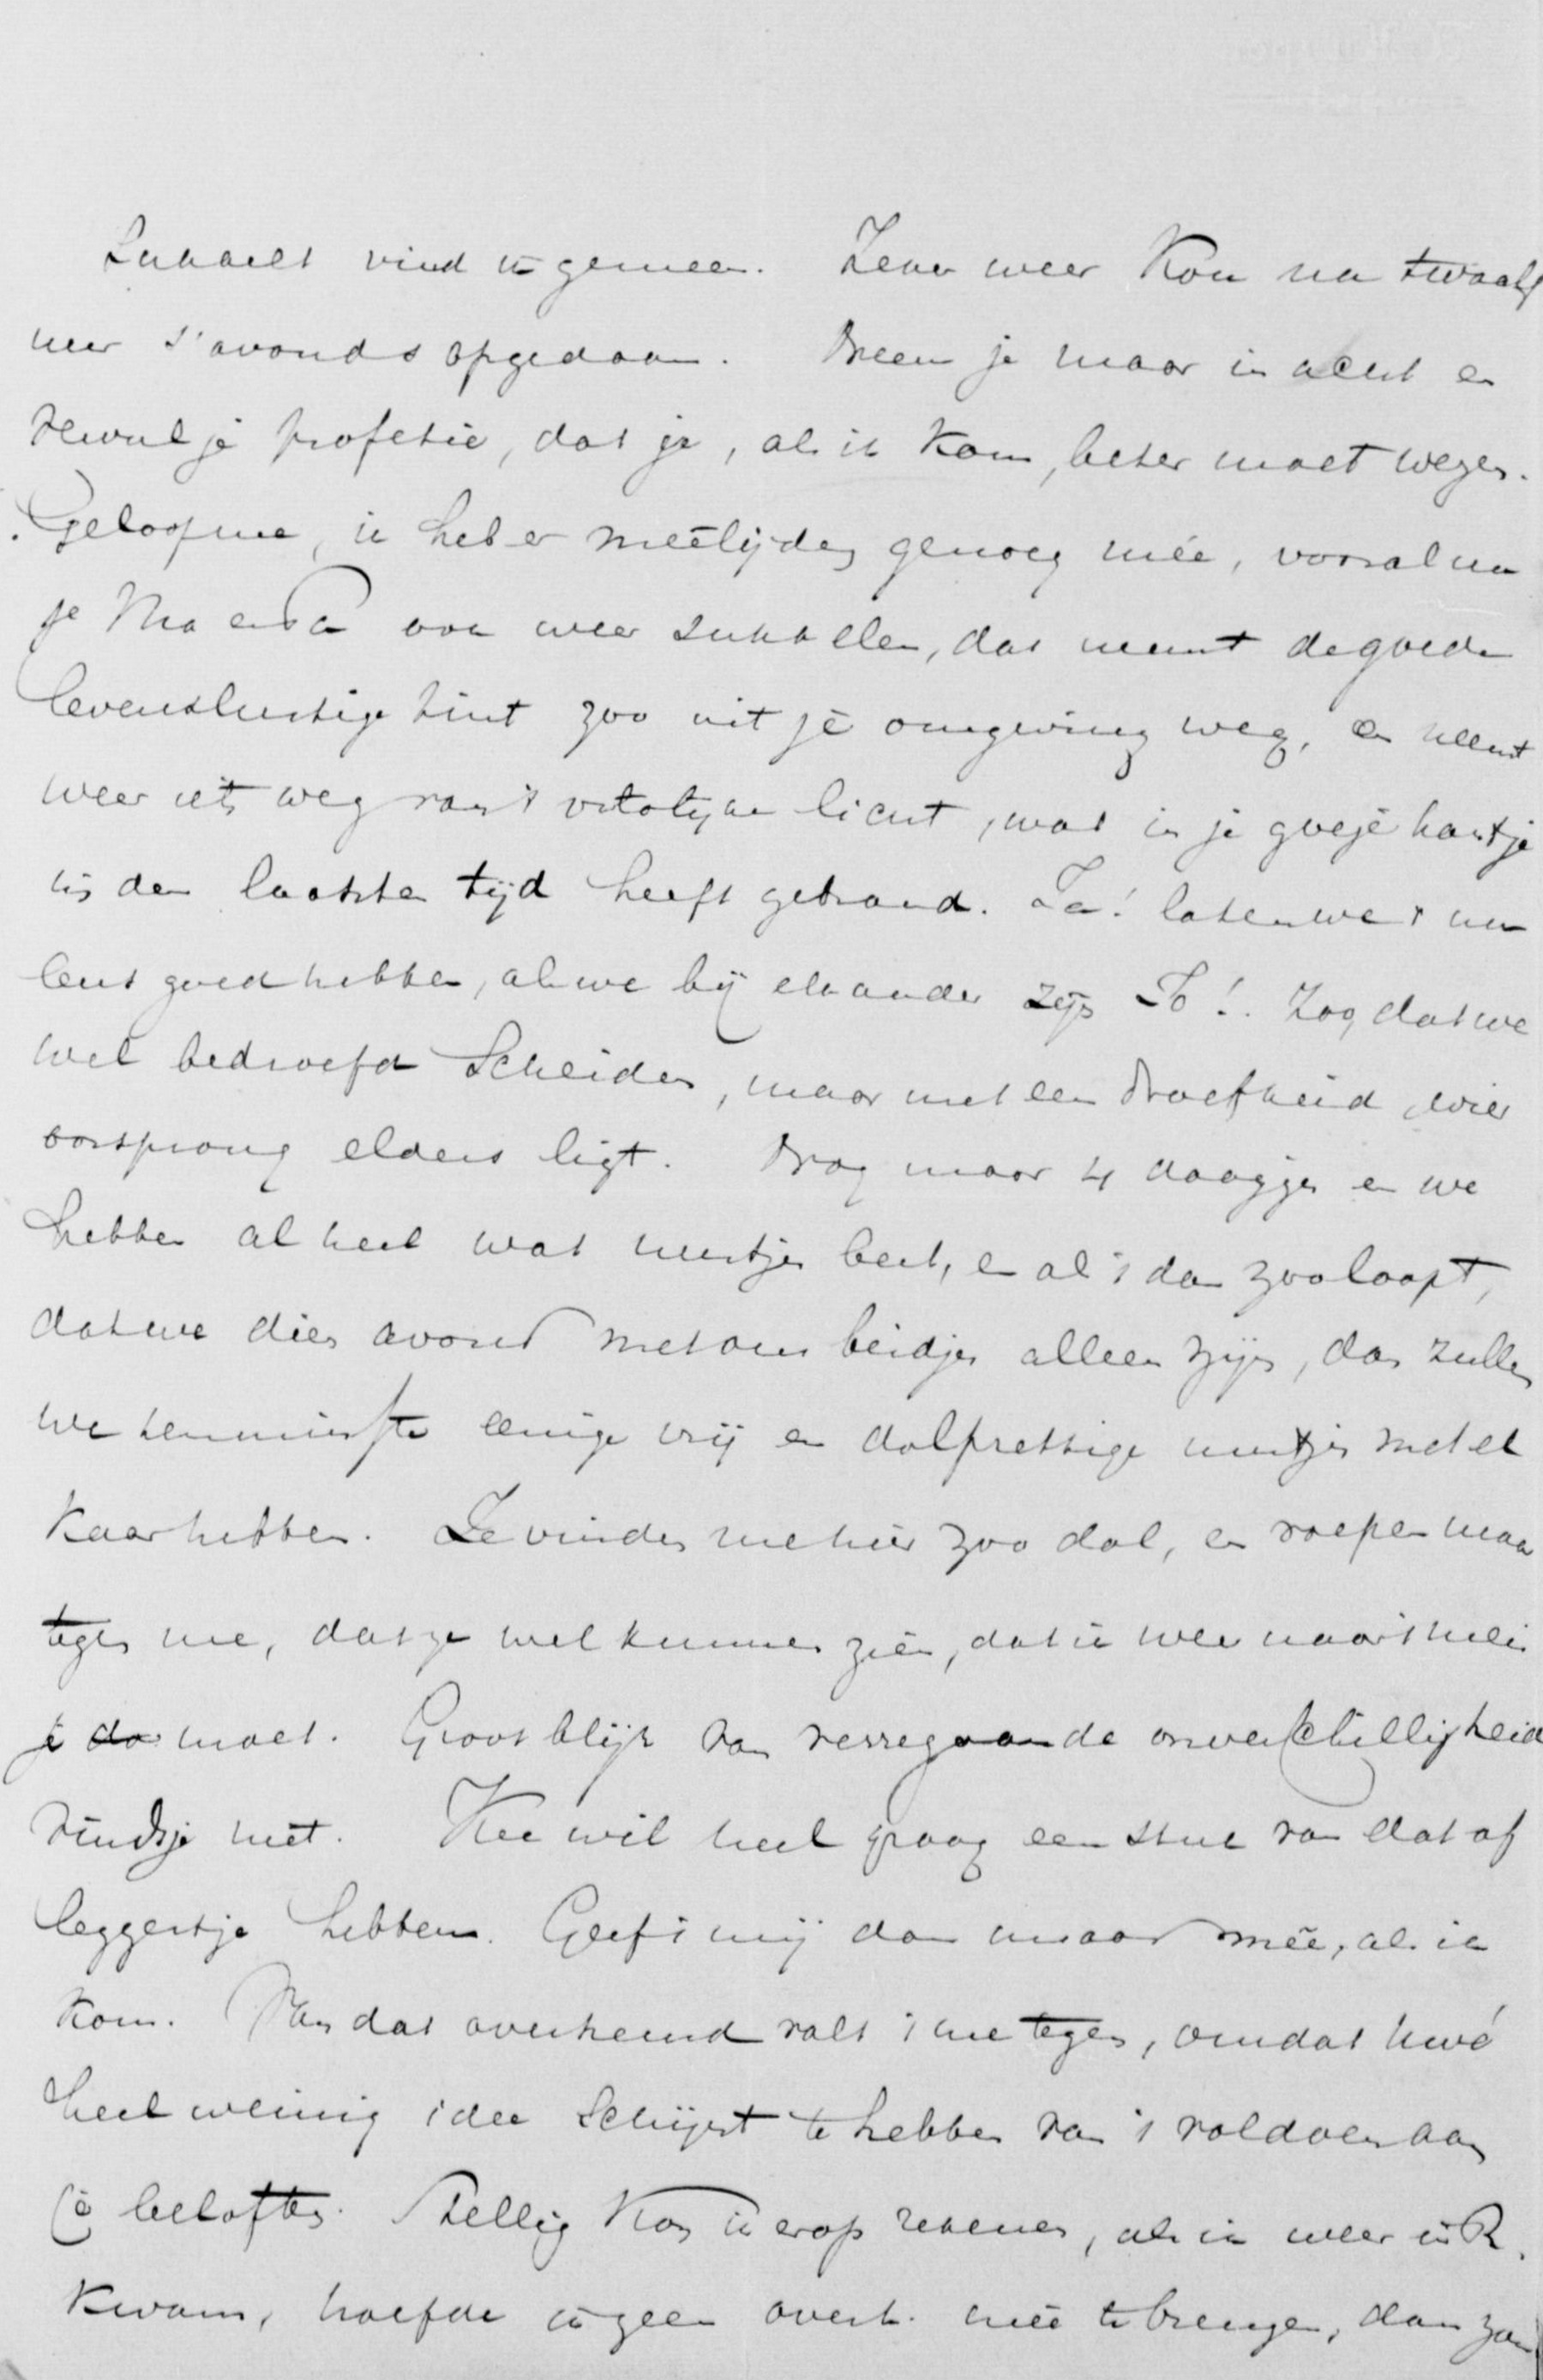 Sukkelt vind ik gemeen. Zeker weer Kou na twaalf
uur s'avonds opgedaan. Neem je maar in acht en
vervul je profetie, dat je, als ik Kom, beter moet wezen.
Geloof me, ik heb er meêlijden genoeg mée, vooral nu
je Ma en Pa ook weer sukkelen, dat neemt de goede
levenslustige tint zoo uit je omgeving weg, en neemt
weer iets weg van 't vrolijke licht, wat in je goeje hartje
in den laatsten tijd heeft gebrand. Ja! laten we 't nu
eens goed hebben, als we bij elkander zijn Jo! Zoo, dat we
wel bedroefd Scheiden, maar met een droefheid, wier
oorsprong elders ligt. Nog maar 4 daagjes en we
hebben al heel wat uurtjes beet, en als 't dan zoo loopt,
dat we dien avond met ons beidjes alleen zijn, dan zullen
we tenminste eenige vrij en dolprettige uurtjes met el
Kaar hebben. Ze vinden me hier zoo dol, en roepen maar
tegen me, dat ze wel kunnen zien, dat ik weer naar 't meis
je do moet. Groot blijk van verregaande onverschilligheid
vindt je niet. Kee wil heel graag een stuk van dat af
leggertje hebben. Geef 't mij dan maar mêe, als ik
Kom. Van dat overhemd valt 't me tegen, omdat
heel weinig idee Schijnt te hebben van 't voldoen aan
je beloften. Stellig Kon ik erop rekenen, als ik weer in R.
Kwam, hoefde ik geen overh. mêe te brengen, dan zou